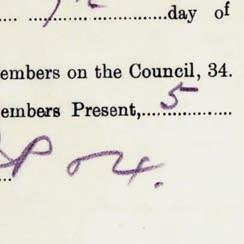 day of
embers on the Council, 34.
embers Present, 5